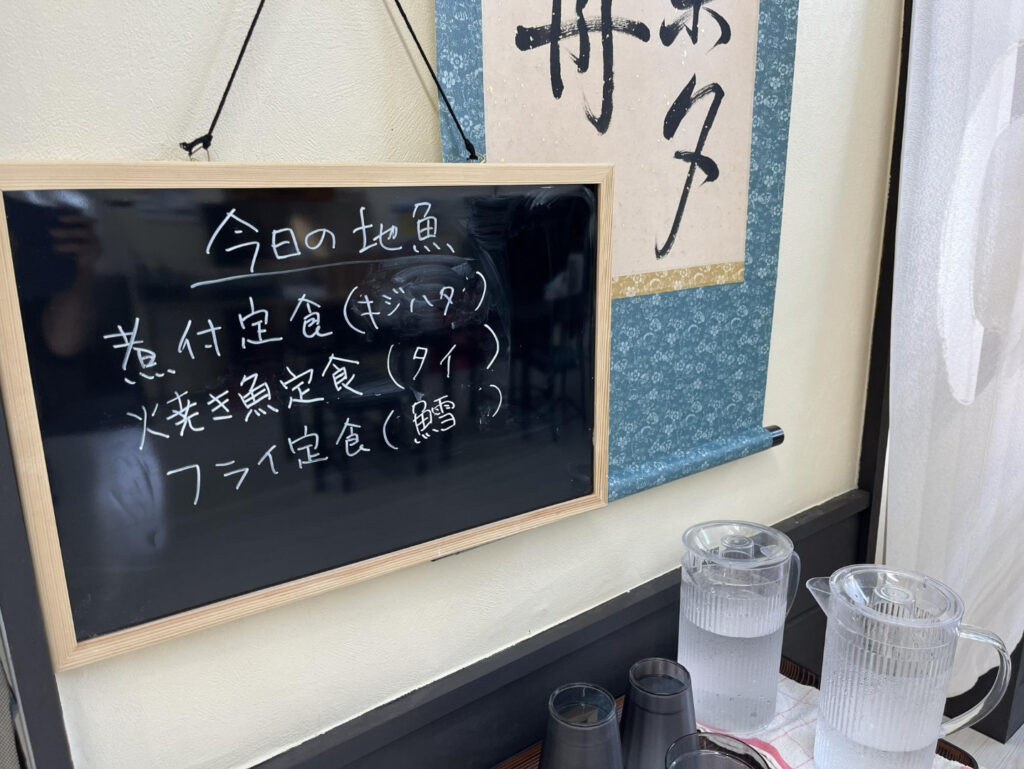 今日の地魚
煮付定食(キジハタ)
焼き魚定食(タイ)
フライ定食(鱈)
夕
舟